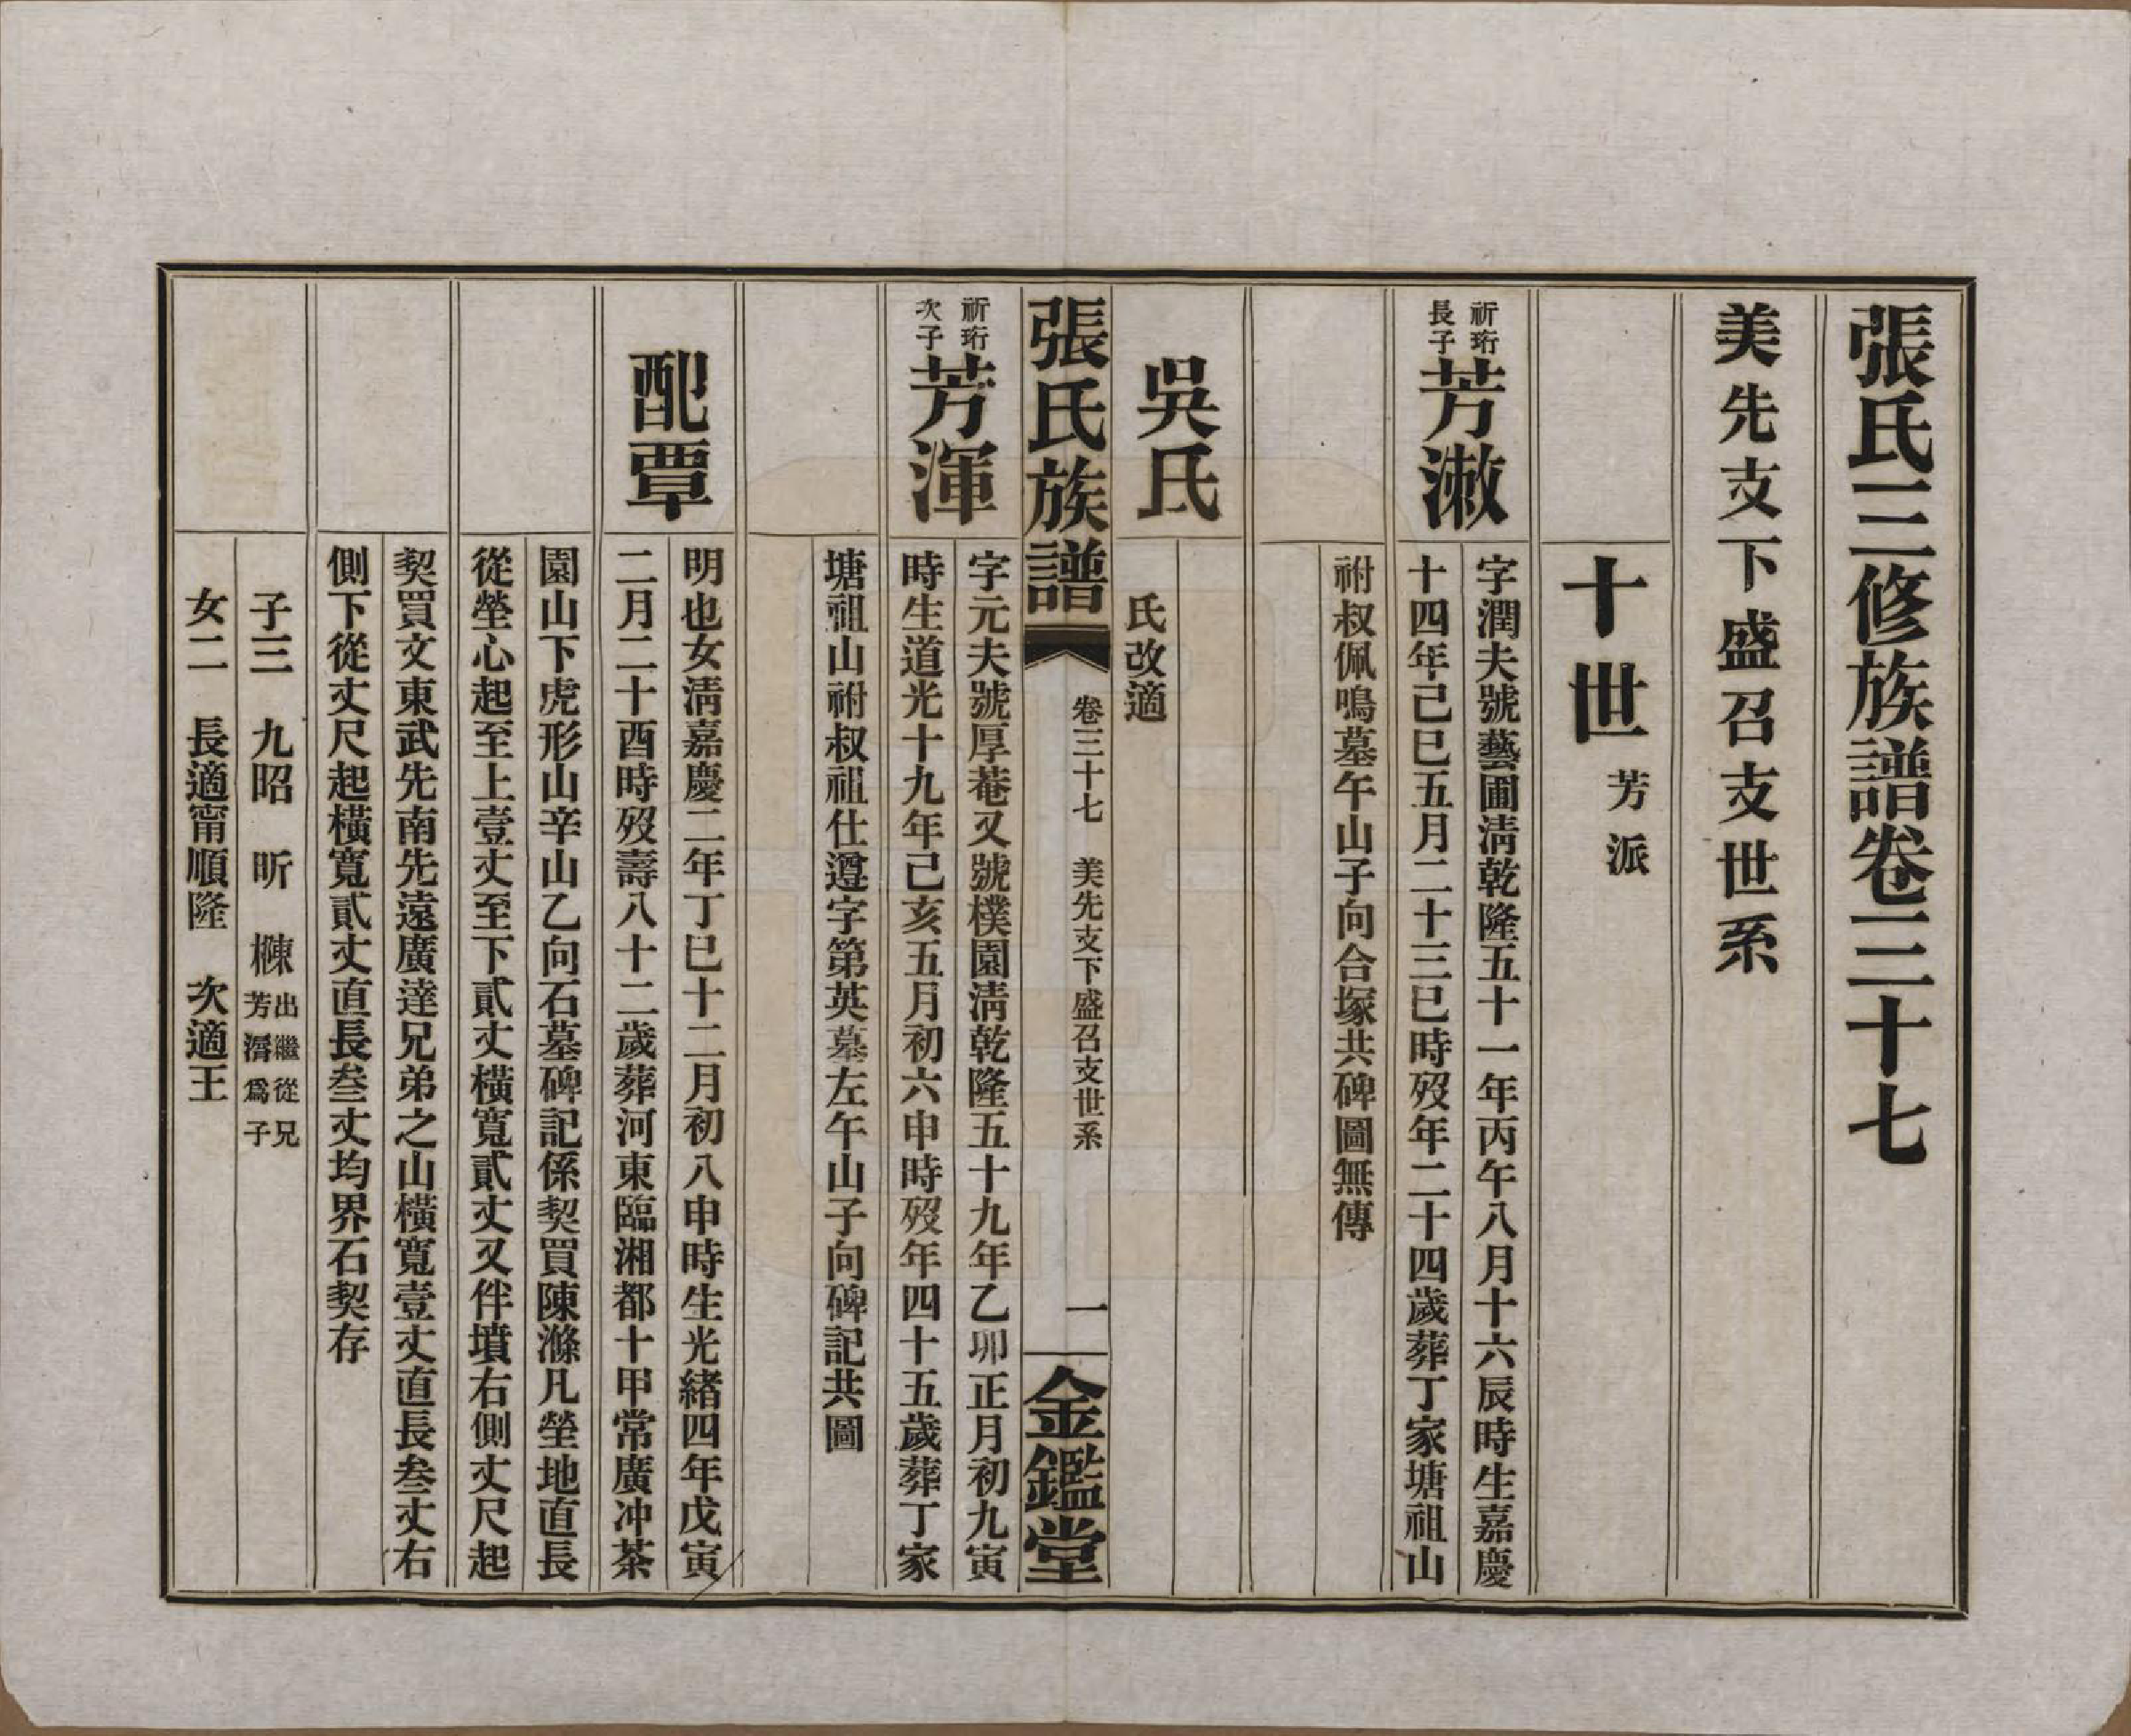 張氏三修族譜卷三十七
美先支下盛召支世系
十世 芳派
祈珩長子 芳漵
字潤夫號藝圃淸乾隆五十一年丙午八月十六辰時生嘉慶
十四年己巳五月二十三巳時歿年二十四歲葬丁家塘祖山
祔叔佩鳴墓午山子向合塚共碑圖無傳
吳氏
氏改適
張氏族譜 卷三十七 美先支下盛召支世系 一 金鑑堂
祈珩次子 芳渾
字元夫號厚菴又號樸園淸乾隆五十九年乙卯正月初九寅
時生道光十九年己亥五月初六申時歿年四十五歲葬丁家
塘祖山祔叔祖仕遵字第英墓左午山子向碑記共圖
配覃
明也女淸嘉慶二年丁巳十二月初八申時生光緒四年戊寅
二月二十酉時歿壽八十二歲葬河東臨湘都十甲常廣冲茶
園山下虎形山辛山乙向石墓碑記係契買陳滌凡塋地直長
從塋心起至上壹丈至下貳丈橫寬貳丈又伴墳右側丈尺起
契買文東武先南先遠廣達兄弟之山橫寬壹丈直長叁丈右
側下從丈尺起橫寬貳丈直長叁丈均界石契存
子三 九昭 昕 㯝 出繼從兄芳濳爲子
女二 長適甯順隆 次適王